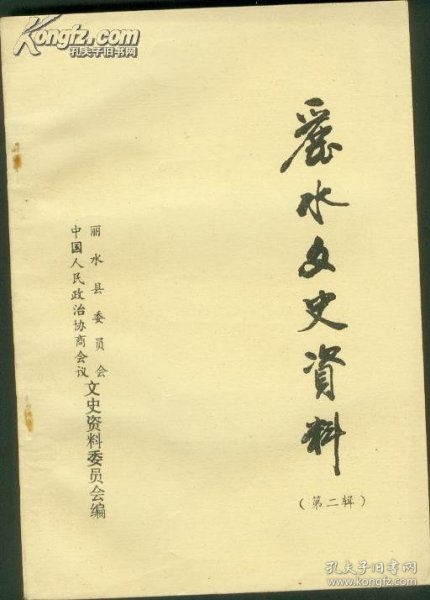 Kongfz.com
孔夫子旧书网
麗水文史資料
(第二辑)
丽水县委员会
中国人民政治协商会议
文史资料委员会编
孔夫子旧书网
www.kongfz.com